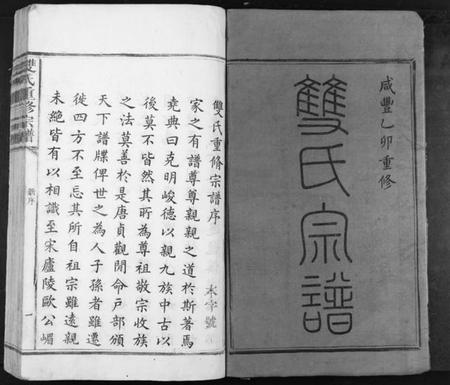 咸豐乙卯重修
雙氏宗譜
雙氏重修宗譜序
木字號
家之有譜尊尊親親之道於斯著焉
堯典曰克明峻德以親九族中古以
後莫不皆然其所為尊祖敬宗收族
之法莫善於是唐貞觀間命戶部頒
天下譜牒俾世之為人子孫者雖遷
徙四方不至忘其所自祖宗雖遠親
未絕皆有以相識至宋廬陵歐公嵋
雙氏重修宗譜
序
一